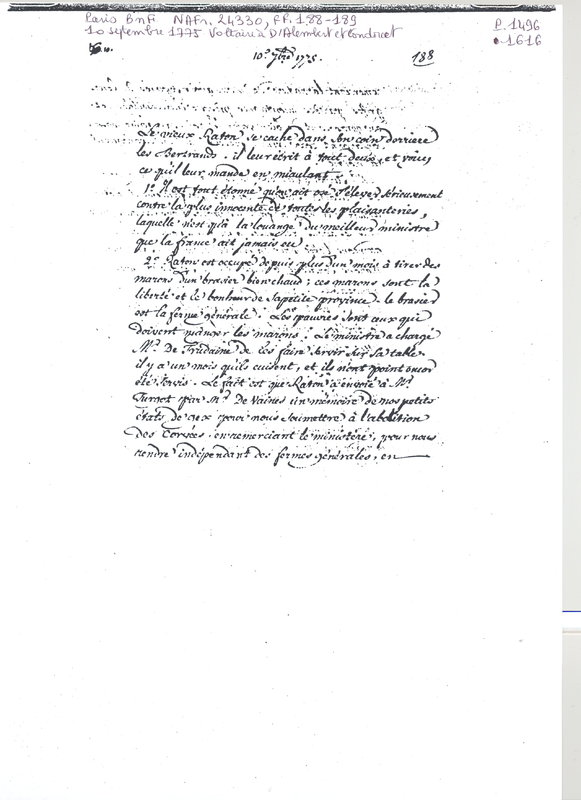 Paris BnF NAFr. 24330, ff. 188-189
P. 1496
10 septembre 1775 Voltaire à D'Alembert et Condorcet
1616
10e 7bre 1775.
188
Le vieux Raton se cache dans son coin derriere
les Bertrands. il leur écrit à tout deux, et voicy
ce qu'il leur mande en miaulant.
1o. Il est tout étonné qu'on ait osé s'élever sérieusement
contre la plus innocente de toutes les plaisanteries,
laquelle n'est qu'à la louange du meilleur ministre
que la france ait jamais eu.
2o. Raton est occupé depuis plus d'un mois à tirer des
marons d'un brasier bien chaud; ces marons sont la
liberté et le bonheur de sa petite province. le brasier
est la ferme générale. Les pauvres sont ceux qui
doivent manger les marons. Le ministre a chargé
Mr. De Trudaine de les faire servir sur sa table.
il y a un mois qu'ils cuisent, et ils n'ont point encor
été servis. Le fait est que Raton a envoié à Mr.
Turgot par Mr. De Vaines un mémoire de nos petits
états de Gex pour nous soumettre à l'abolition
des Corvées, en remerciant le ministère, pour nous
rendre indépendant des fermes générales, en